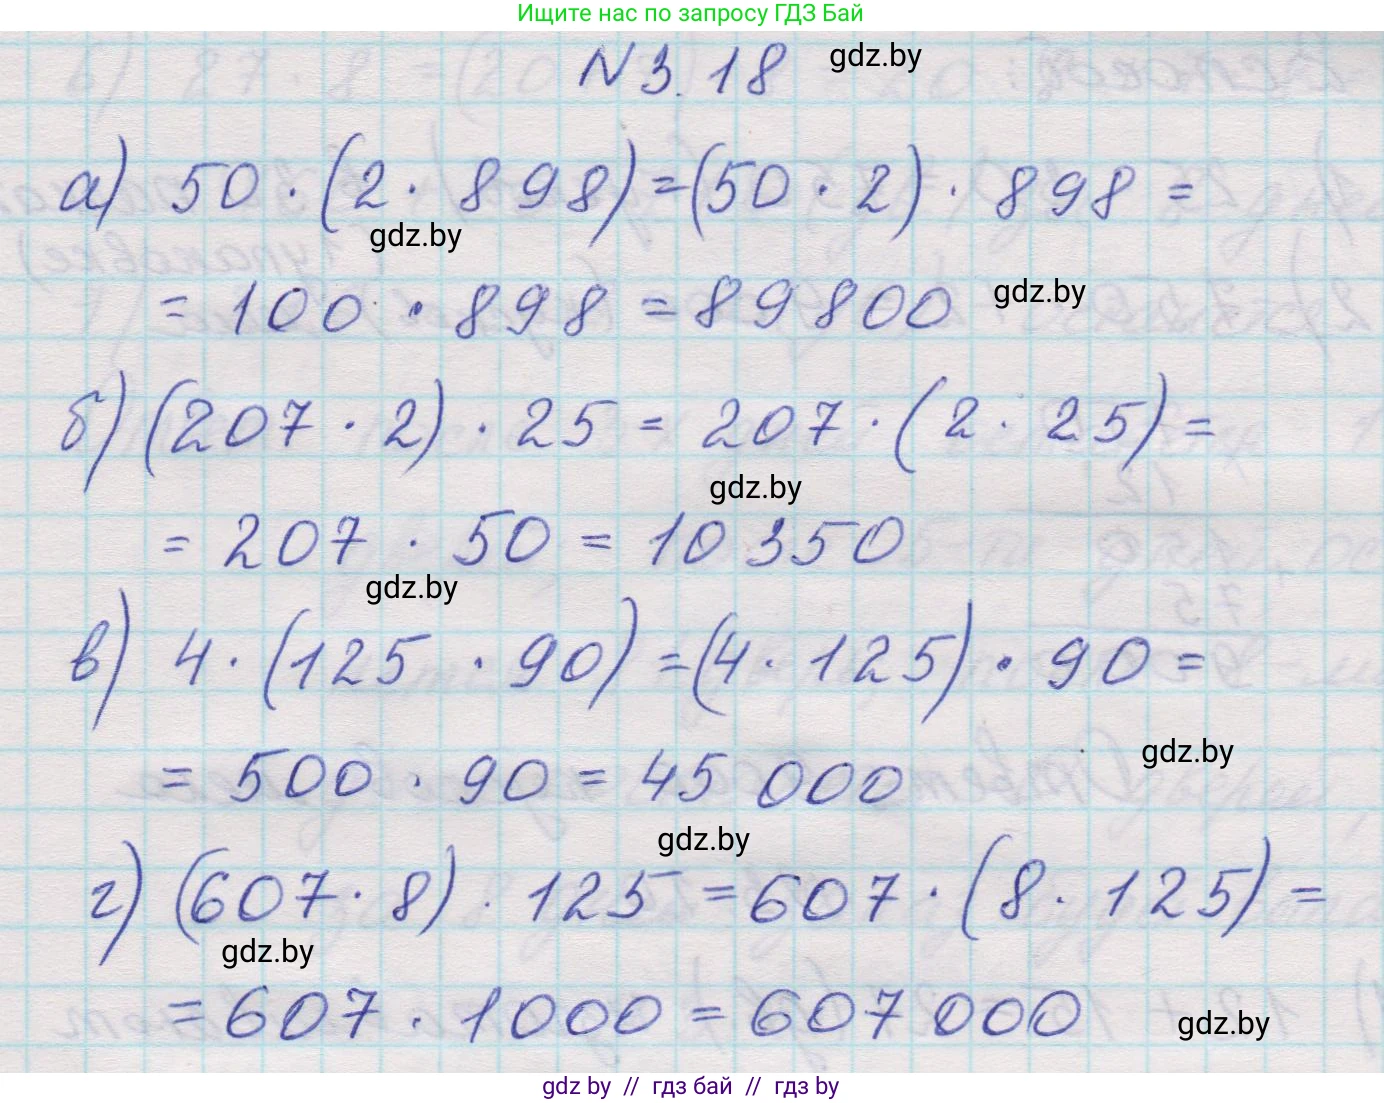 Ищите нас по запросу ГДЗ Бай
N 3.18 gdz.by
а) 50 · (2 · 898) = (50 · 2) · 898 =
gdz.by
= 100 · 898 = 89800 gdz.by
б) (207 · 2) · 25 = 207 · (2 · 25) =
gdz.by
= 207 · 50 = 10 350
gdz.by
в) 4 · (125 · 90) = (4 · 125) · 90 =
gdz.by
= 500 · 90 = 45 000
gdz.by
г) (607 · 8) · 125 = 607 · (8 · 125) =
gdz.by
= 607 · 1000 = 607 000 gdz.by
gdz by // гдз бай // гдз by